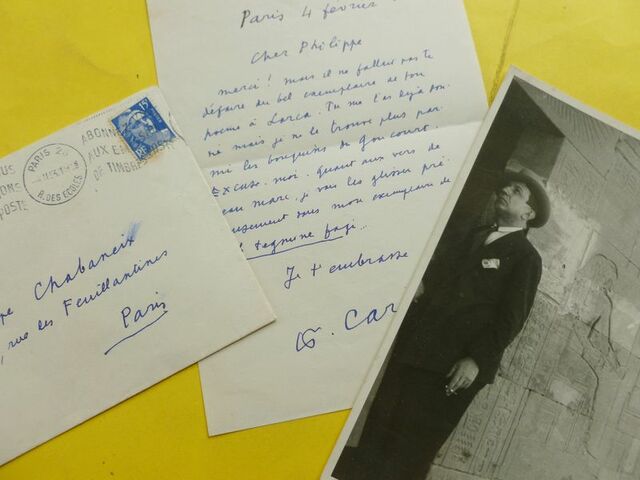 Paris 4 février
Cher Philippe
merci ! mais il ne fallait pas te
défaire du bel exemplaire de ton
poème à Lorca. Tu me l'as déjà don-
né mais je ne le trouve plus par-
mi les bouquins de Goncourt.
Excuse-moi. Quant aux vers de
ean Marc, je vais les glisser pré-
usement dans mon exemplaire de
Je t'embrasse
Car
15F
RF
PARIS 20
R. DES ECOLES
ABONNE
AUX EM
DE TIMBRES-POSTE
US
ONS
POSTE
pe Chabaneix
, rue des Feuillantines
Paris